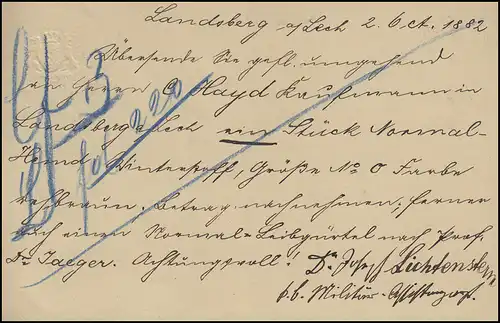 Landsberg a/Lech 2. Oct. 1882
Übersende Sie gefl. umgehend
an Herrn C Hayd Kaufmann in
Landsberg a/Lech ein Stück Normal-
Hemd Winterstoff, Größe No 0 Farbe
rehbraun. Betrag nachnehmen; ferner
auch einen Normal-Leibgürtel nach Prof.
Dr. Jaeger. Achtungsvoll! Dr. Josef Lichtenstein,
Militär-